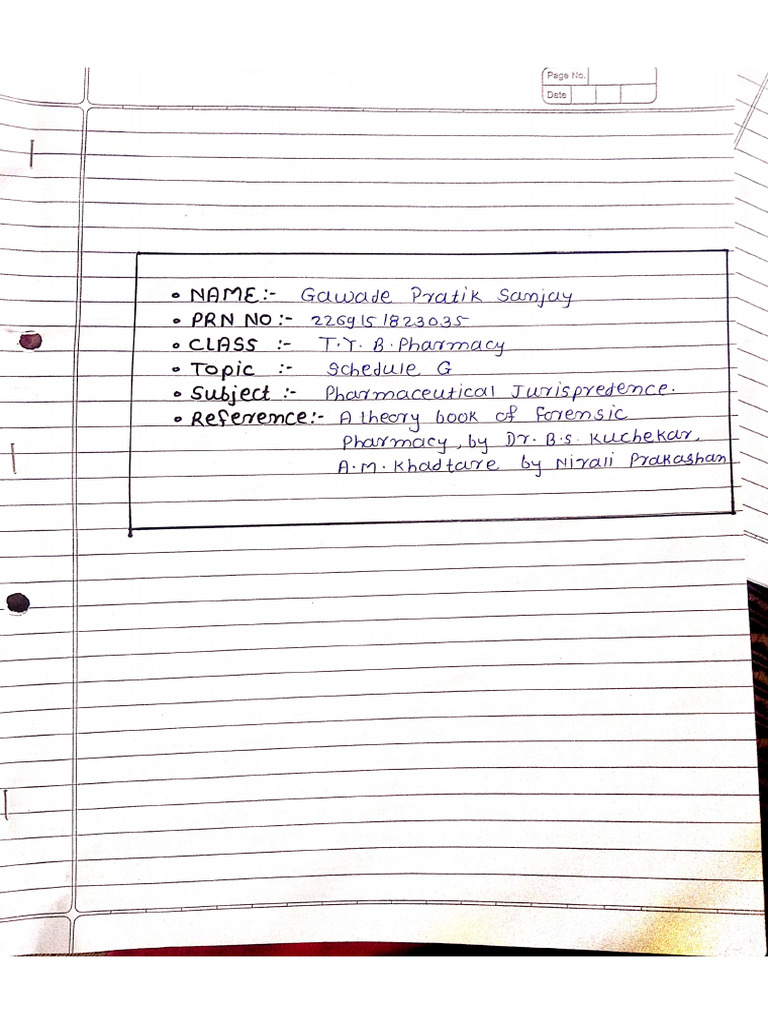 Page No.
Date
• NAME:- Gawade Pratik Sanjay
• PRN NO :- 226915 1823035
• CLASS :- T.Y. B. Pharmacy
• Topic :- Schedule G
• Subject :- Pharmaceutical Jurispredence.
• Reference:- A theory book of Forensic
Pharmacy, by Dr. B.S. Kuchekar,
A.M. Khadtare by Nirali Prakashan